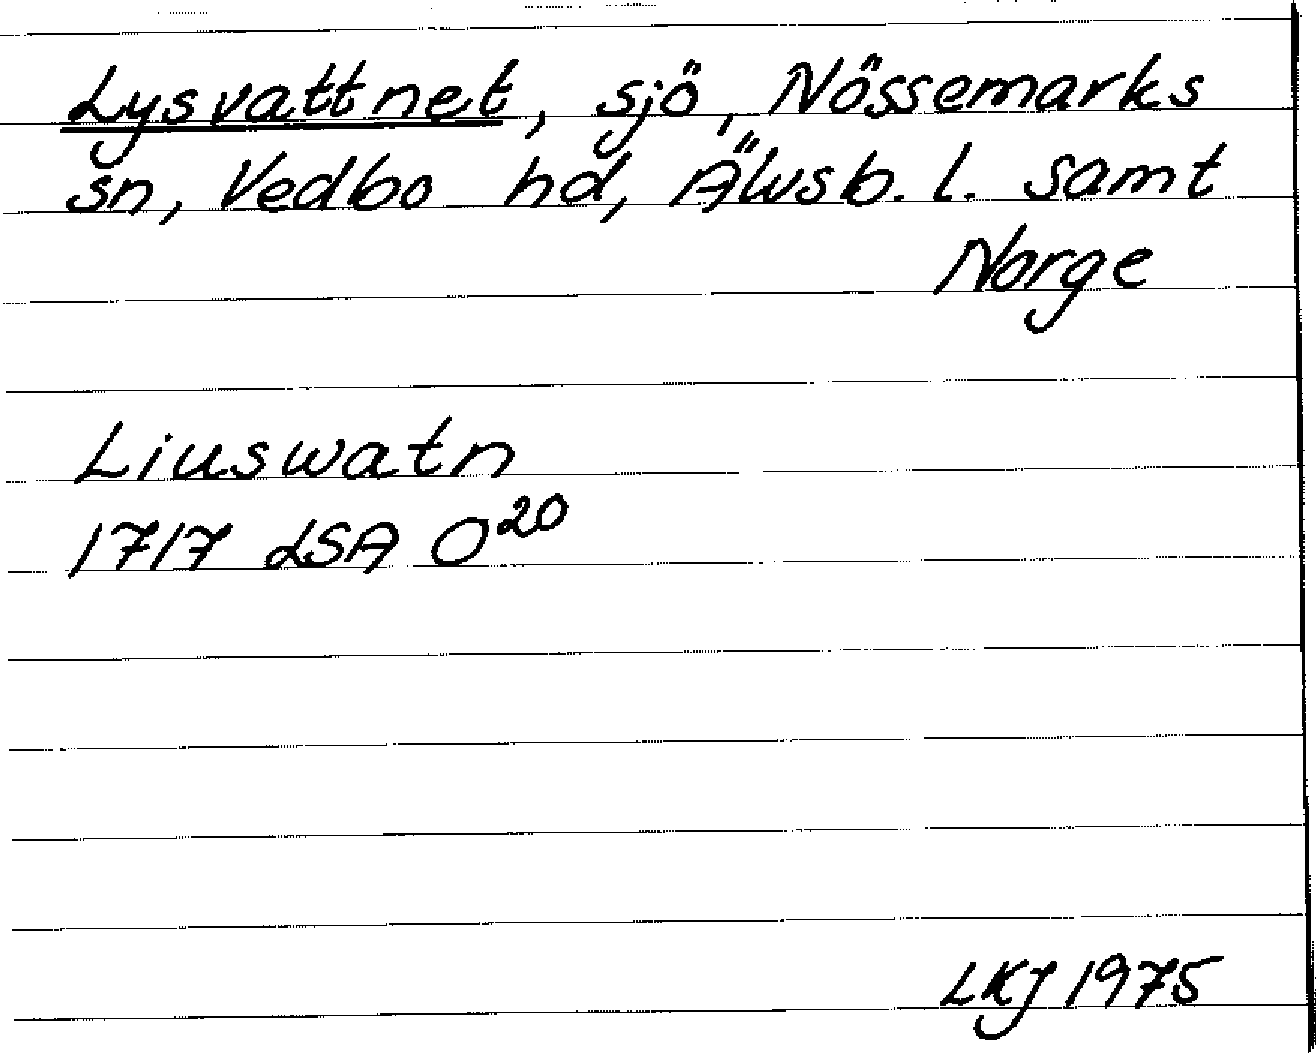 Lysvattnet, sjö, Nössemarks
sn, Vedbo hd, Älvsb. l. samt
Norge
Liuswatn
1717 LSA O²⁰
LKJ 1975